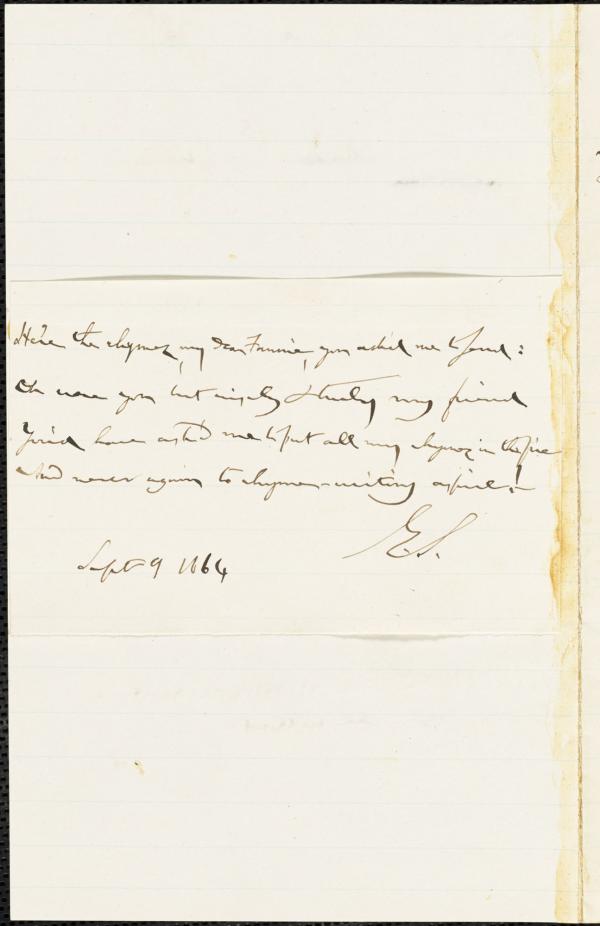 Here the rhymes, my dear Fannie, you asked me to send:
Oh were you but wisely & truly my friend
You'd have ask'd me to put all my rhymes in the fire
And never again to rhyme-writing aspire!
E.S.
Sept 9 1864